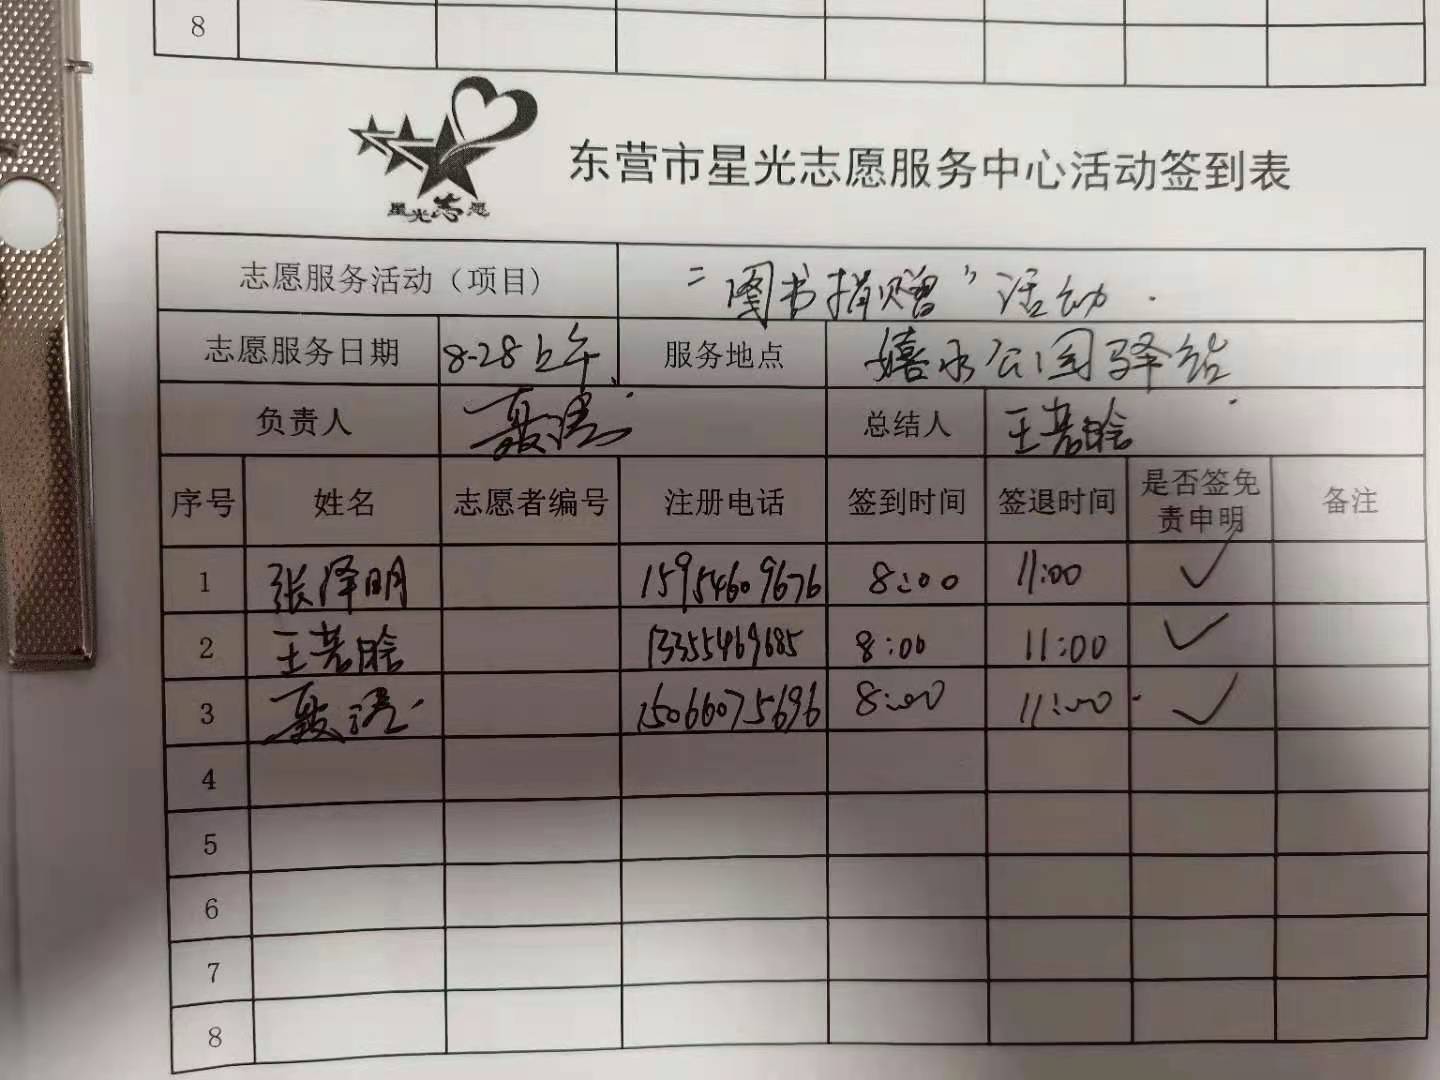 8
星光志愿
东营市星光志愿服务中心活动签到表
志愿服务活动（项目） “图书捐赠”活动.
志愿服务日期 8-28上午 服务地点 嬉水公园驿站
负责人 总结人 王若晗
序号 姓名 志愿者编号 注册电话 签到时间 签退时间 是否签免责申明 备注
1 张泽明 15954609676 8:00 11:00 ✓
2 王若晗 13355469685 8:00 11:00 ✓
3 15066075696 8:00 11:00 ✓
4
5
6
7
8